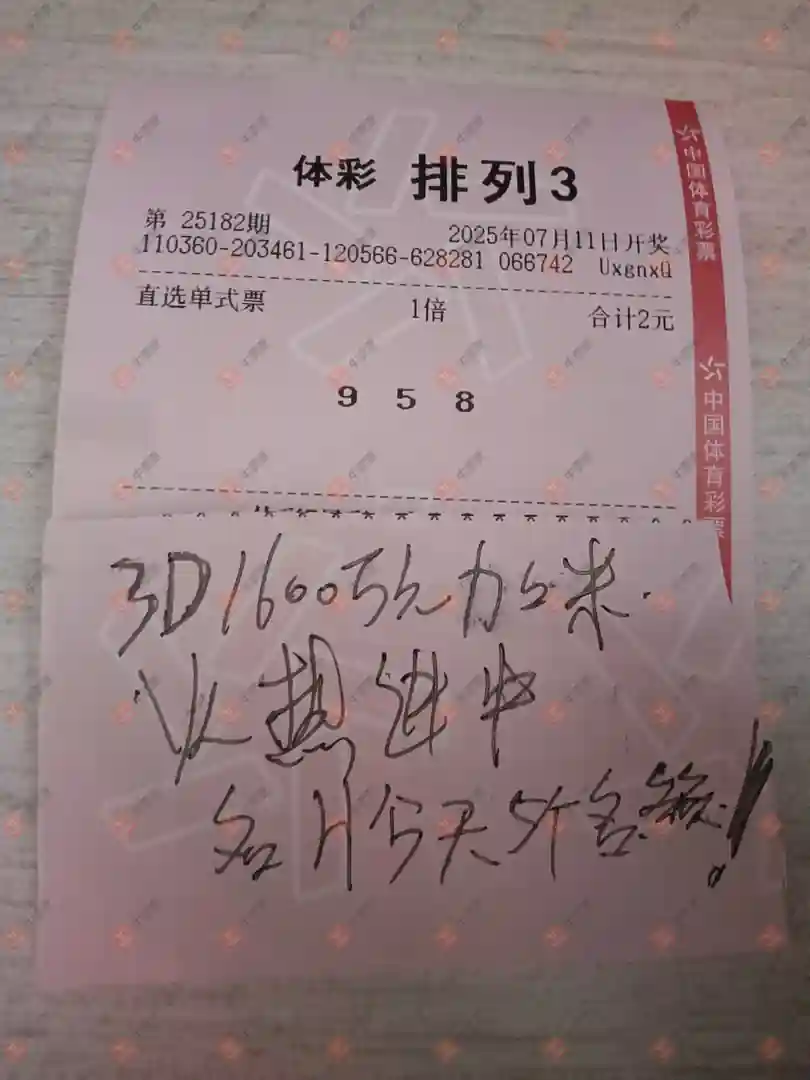 体彩 排列3
第 25182期 2025年07月11日开奖
110360-203461-120566-628281 066742 UxgnxQ
直选单式票 1倍 合计2元
9 5 8
中国体育彩票
中国体育彩票
3D1600万元
火热进中
名片今天5个名额!